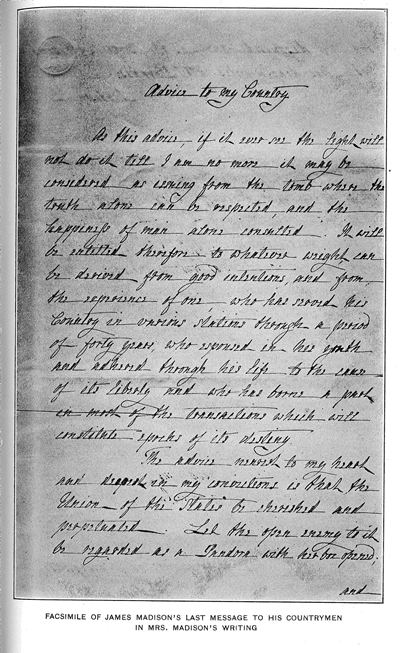 Advice to my Country
As this advice, if it ever see the light will
not do it till I am no more it may be
considered as issuing from the tomb where the
truth alone can be respected, and the
happiness of man alone consulted. It will
be entitled therefore to whatever weight can
be derived from good intentions, and from
the experience of one who has served his
Country in various stations through a period
of forty years, who espoused in his youth
and adhered through his life to the cause
of its liberty and who has borne a part
in most of the transactions which will
constitute epochs of its destiny
The advice nearest to my heart
and deepest in my convictions is that the
Union of the States be cherished and
perpetuated. Let the open enemy to it
be regarded as a Pandora with her box opened,
and
FACSIMILE OF JAMES MADISON'S LAST MESSAGE TO HIS COUNTRYMEN
IN MRS. MADISON'S WRITING